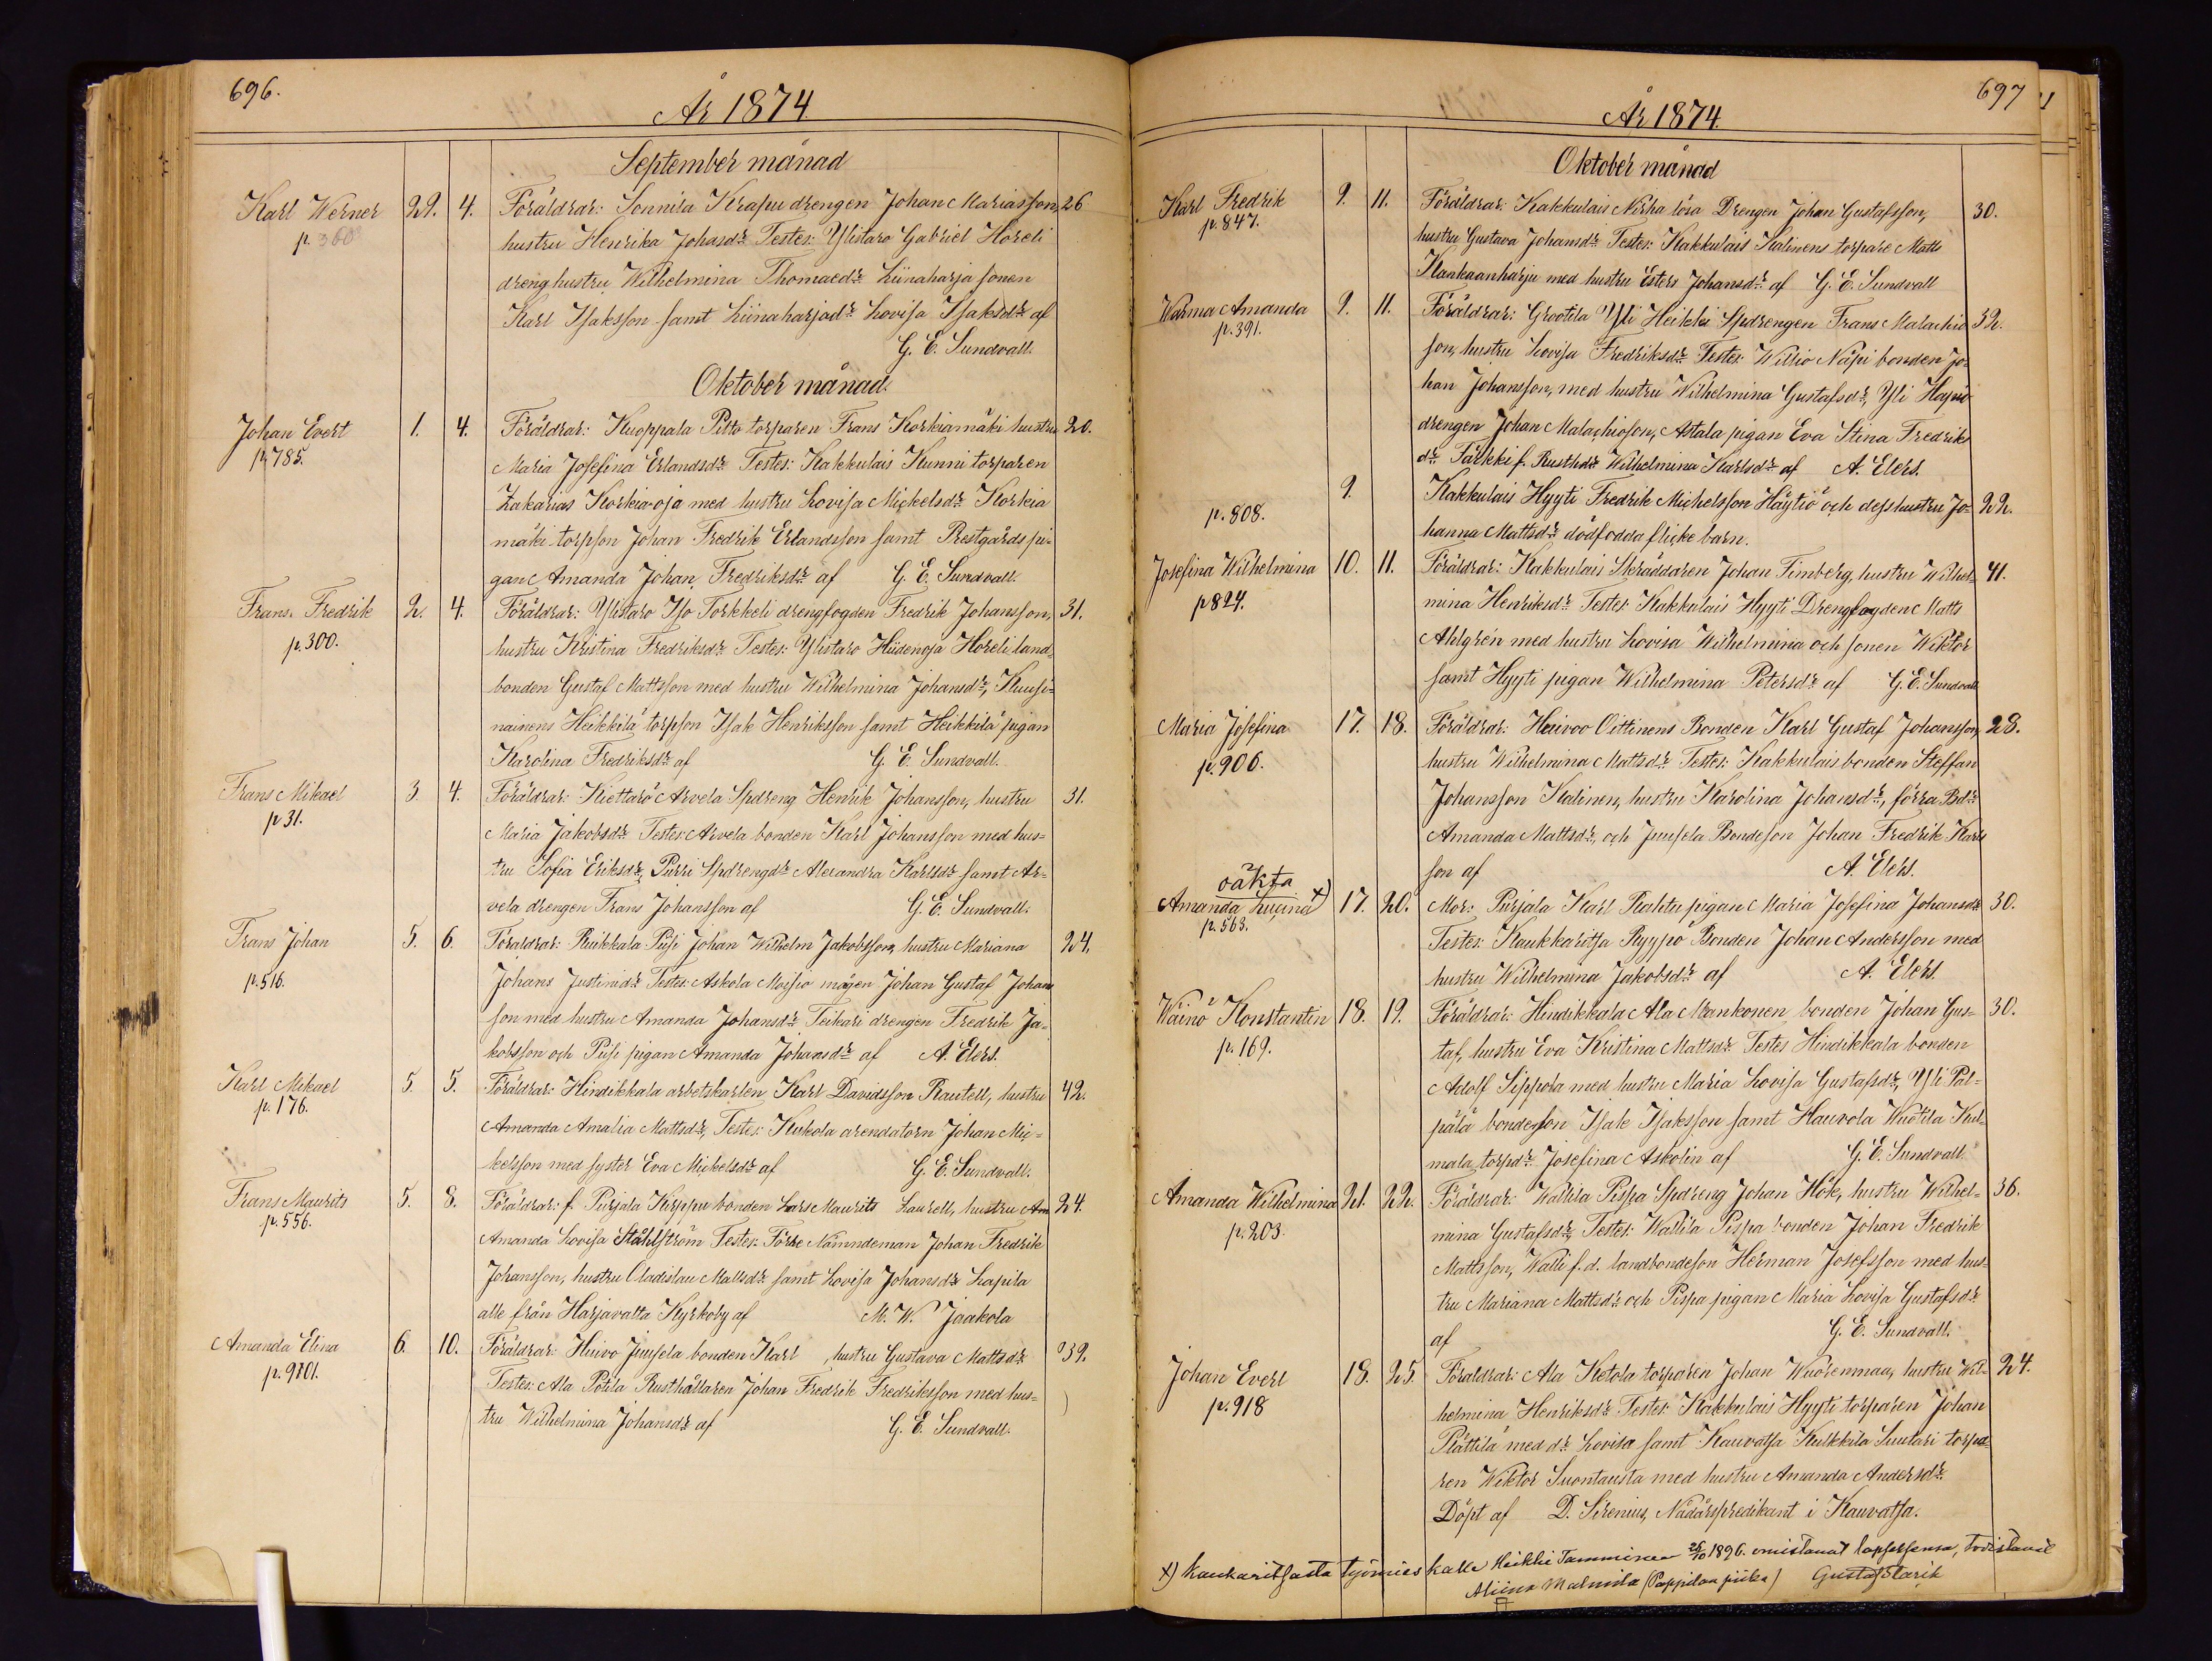 696.
År 1874.
September månad
Karl Werner 29. 4. Föräldrar: Sonnila Krapu drengen Johan Mariasson, 26
p. 360 hustru Henrika Johasdr Testes: Ylistaro Gabriel Horeli
dreng hustru Wilhelmina Thomaedr Liinaharja sonen
Karl Isaksson samt Liinaharjadr Lovisa Isaksdr af
G. E. Sundvall.
Oktober månad.
Johan Evert 1. 4. Föräldrar: Kuoppala Pitto torparen Frans Korkiamäki hustru 20.
p. 785. Maria Josefina Erlandsdr Testes: Kakkulais Kunni torparen
Zakarias Korkia-oja med hustru Lovisa Mickelsdr Korkia
mäki torpson Johan Fredrik Erlandsson samt Prestgårds pi-
gan Amanda Johan Fredriksdr af G. E. Sundvall.
Frans Fredrik 2. 4. Föräldrar: Ylistaro Iso Torkkeli drengfogden Fredrik Johansson, 31.
p. 300. hustru Kristina Fredriksdr Testes: Ylistaro Hiidenoja Horeli land-
bonden Gustaf Mattsson med hustru Wilhelmina Johansdr, Kuusi-
naisens Heikkilä torpson Isak Henriksson samt Heikkilä pigan
Karolina Fredriksdr af G. E. Sundvall.
Frans Mikael 3. 4. Föräldrar: Kiettarö Arvela Spdreng Henrik Johansson, hustru 31.
p 31. Maria Jakobsdr Testes: Arvela bonden Karl Johansson med hus=
tru Sofia Eriksdr, Purri Spdrengdr Alexandra Karlsdr samt Ar=
vela drengen Frans Johansson af G. E. Sundvall.
Frans Johan 5. 6. Föräldrar: Rukkala Pusi Johan Wilhelm Jakobsson, hustru Mariana 24.
p. 516. Johans Justinidr Testes: Askola Moisio mågen Johan Gustaf Johans
son med hustru Amanda Johansdr Teikari drengen Fredrik Ja-
kobsson och Pusi pigan Amanda Johansdr af A. Elers.
Karl Mikael 5. 5. Föräldrar: Hindikkala arbetskarlen Karl Davidsson Rautell, hustru 42.
p. 176. Amanda Amalia Mattsdr, Testes: Kukola arendatorn Johan Mic=
kelsson med syster Eva Mickelsdr af G. E. Sundvall.
Frans Maurits 5. 8. Föräldrar: f. Purjala Kirppu bonden Lars Maurits Laurell, hustru Am 24.
p. 556. Amanda Lovisa Ståhlström Testes: Förre Nämndeman Johan Fredrik
Johansson, hustru Vladislau Mattsdr samt Lovisa Johansdr Lapila
alle från Harjavalta Kyrkoby af M. W. Jaakola
Amanda Elina 6. 10. Föräldrar: Huivo Juusela bonden Karl , hustru Gustava Mattsdr 39.
p. 9101. Testes: Ala Potila Rusthållaren Johan Fredrik Fredriksson med hus=
tru Wilhelmina Johansdr af G. E. Sundvall.
697
År 1874.
Oktober månad
Karl Fredrik 9. 11. Föräldrar: Kakkulais Nirha lösa Drengen Johan Gustafsson, 30.
p. 847. hustru Gustava Johansdr Testes: Kakkulais Kalinens torpare Matts
Kankaanharju med hustru Esters Johansdr af G. E. Sundvall
Warma Amanda 9. 11. Föräldrar: Grootila Yli Heikki Spdrengen Frans Malachia 32.
p. 391. son, hustru Lovisa Fredriksdr Testes: Willio Näpi bonden Jo-
han Johansson, med hustru Wilhelmina Gustafsdr, Yli Hapio
drengen Johan Malachiason, Astala pigan Eva Stina Fredriks
dr Tärkki f. Rusthdr Wilhelmina Karlsdr af A. Elers.
9. Kakkulais Hyyti Fredrik Michelsson Häytiö och dess hustru Jo- 22.
p. 808. hanna Mattsdr dödfödda flicke barn.
Josefina Wilhelmina 10. 11. Föräldrar: Kakkulais Skräddaren Johan Timberg, hustru Wilhel- 41.
p 824. mina Henriksdr Testes: Kakkulais Hyyti Drengfogden Matts
Ahlgrén med hustru Lovisa Wilhelmina och sonen Wiktor
samt Hyyti pigan Wilhelmina Petersdr af G. E. Sundvall
Maria Josefina 17. 18. Föräldrar: Huivoo Oittinens Bonden Karl Gustaf Johansson, 28.
p. 906. hustru Wilhelmina Mattsdr Testes: Kakkulais bonden Steffan
Johansson Kalinen, hustru Karolina Johansdr, förra Bdr
Amanda Mattsdr, och Juusela Bondeson Johan Fredrik Karls
son af A. Elers.
oäkta
Amanda Lucina x) 17. 20. Mor: Purjala Karl Rahtu pigan Maria Josefina Johansdr 30.
p. 563. Testes: Kaukkaritsa Ryypö Bonden Johan Andersson med
hustru Wilhelmina Jakobsdr af A. Elers
Wäinö Konstantin 18. 19. Föräldrar: Hindikkala Ala Mankonen bonden Johan Gus- 30.
p. 169. taf, hustru Eva Kristina Mattsdr. Testes Hindikkala bonden
Adolf Sippola med hustru Maria Lovisa Gustafsdr, Yli Pal-
pälä bondeson Isak Isaksson samt Hauvola Wuotila Kul-
mala torpdr Josefina Askolin af G. E. Sundvall
Amanda Wilhelmina 21. 22. Föräldrar: Wallila Pispa Spdreng Johan Hök, hustru Wilhel- 36.
p. 203. mina Gustafsdr, Testes: Wallila Pispa bonden Johan Fredrik
Mattsson, Walli f. d. landbondeson Herman Josefsson med hus-
tru Mariana Mattsdr och Pispa pigan Maria Lovisa Gustafsdr
af G. E. Sundvall.
Johan Evert 18. 25. Föräldrar: Ala Ketola torparen Johan Wuorenmaa, hustru Wil- 24.
p. 918 helmina Henriksdr Testes: Kakkulais Hyyti torparen Johan
Plättilä med dr Lovisa samt Kauvatsa Kulkkila Suutari torpa-
ren Wiktor Suontausta med hustru Amanda Andersdr.
Döpt af D. Sirenius, Nådårspredikant i Kauvatsa.
x) Kaukaritsasta työmies Kalle Heikki Tamminen 26/10 1896. omistanut lapseksensa, todistavat
Aliina Malmila (Pappilan piika) Gustaf Starik